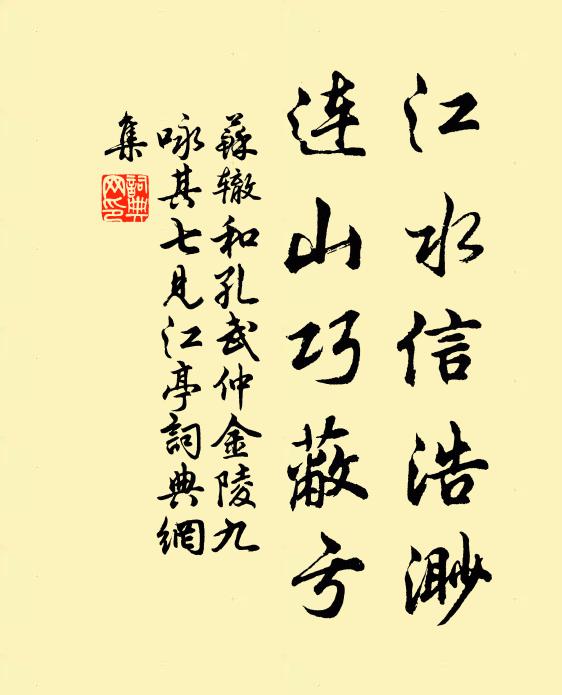 江水信浩渺
连山巧蔽亏
蘇辙和孔武仲金陵九
咏其七見江亭詞典網
集
詞典
网印